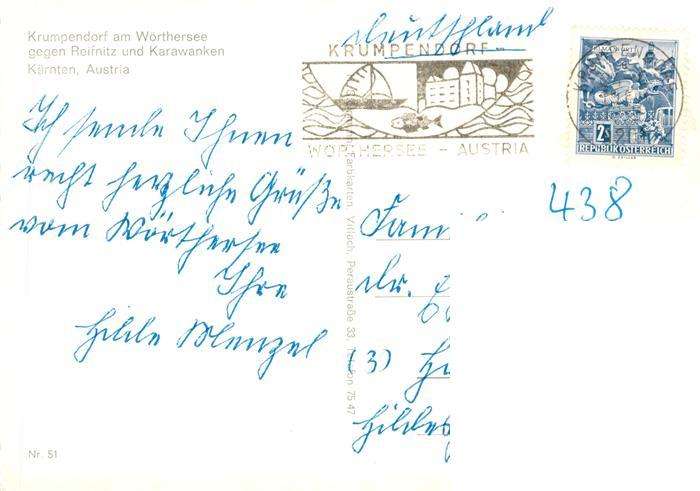 Krumpendorf am Wörthersee
gegen Reifnitz und Karawanken
Kärnten, Austria
Deutschland
KRUMPENDORF -
WÖRTHERSEE - AUSTRIA
2S
REPUBLIK ÖSTERREICH
Ich sende Ihnen
recht herzliche Grüße
vom Wörthersee
Ihre
Hilde Menzel
438
Fami
Dr.
(3) H
Hildes
Peraustraße 33, 7547
Nr. 51